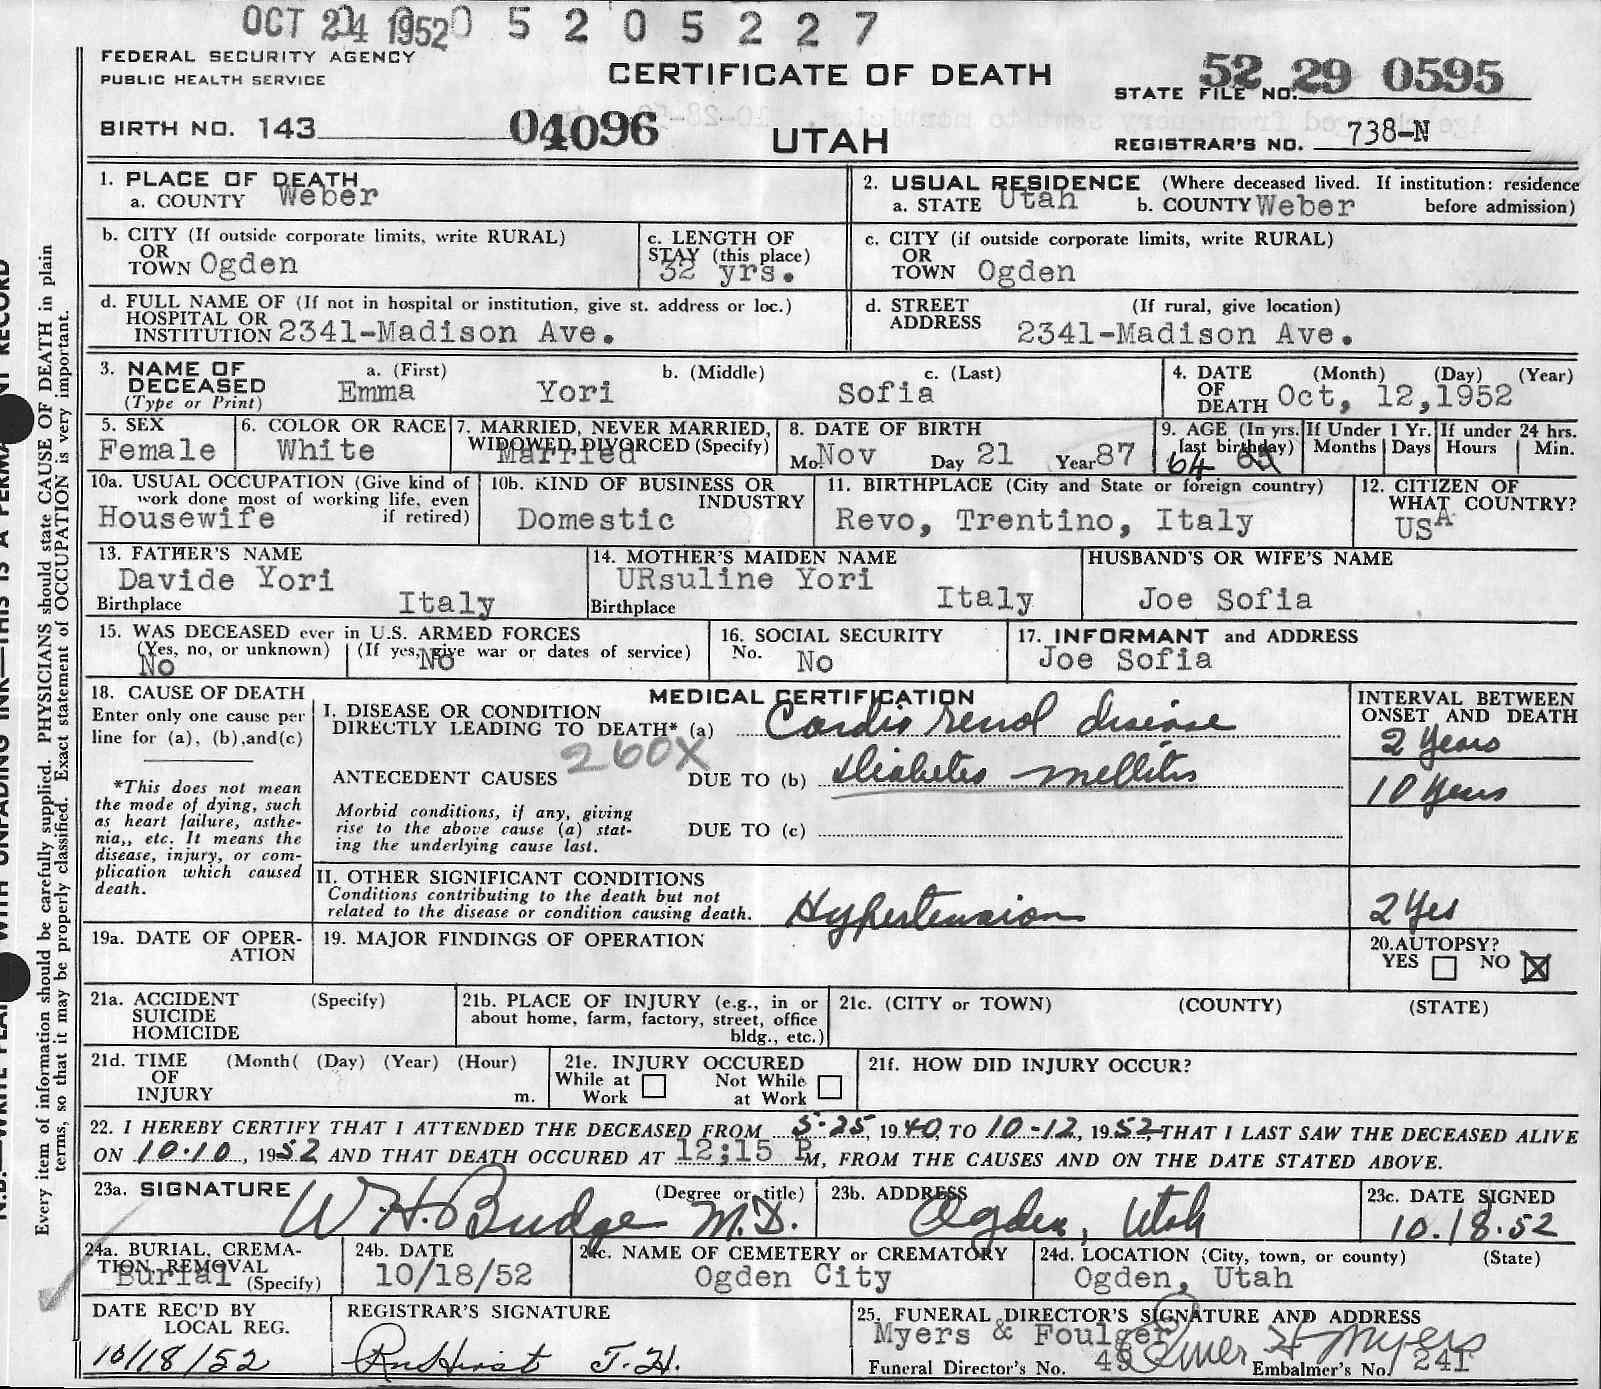 OCT 24 1952 0 5 2 0 5 2 2 7
FEDERAL SECURITY AGENCY
PUBLIC HEALTH SERVICE
CERTIFICATE OF DEATH
STATE FILE NO. 52 29 0595
BIRTH NO. 143 04096
UTAH
REGISTRAR'S NO. 738-N
1. PLACE OF DEATH
a. COUNTY Weber
2. USUAL RESIDENCE (Where deceased lived. If institution: residence
a. STATE Utah b. COUNTY Weber before admission)
b. CITY (If outside corporate limits, write RURAL)
OR
TOWN Ogden
c. LENGTH OF
STAY (this place)
32 yrs.
c. CITY (if outside corporate limits, write RURAL)
OR
TOWN Ogden
d. FULL NAME OF (If not in hospital or institution, give st. address or loc.)
HOSPITAL OR
INSTITUTION 2341-Madison Ave.
d. STREET (If rural, give location)
ADDRESS 2341-Madison Ave.
3. NAME OF a. (First) b. (Middle) c. (Last)
DECEASED Emma Yori Sofia
(Type or Print)
4. DATE (Month) (Day) (Year)
OF
DEATH Oct, 12,1952
5. SEX
Female
6. COLOR OR RACE
White
7. MARRIED, NEVER MARRIED,
WIDOWED, DIVORCED (Specify)
Married
8. DATE OF BIRTH
Mo. Nov Day 21 Year 87
9. AGE (In yrs.
last birthday)
64
If Under 1 Yr.
Months Days
If under 24 hrs.
Hours Min.
10a. USUAL OCCUPATION (Give kind of
work done most of working life, even
Housewife if retired)
10b. KIND OF BUSINESS OR
INDUSTRY
Domestic
11. BIRTHPLACE (City and State or foreign country)
Revo, Trentino, Italy
12. CITIZEN OF
WHAT COUNTRY?
USA
13. FATHER'S NAME
Davide Yori
Birthplace Italy
14. MOTHER'S MAIDEN NAME
URsuline Yori
Birthplace Italy
HUSBAND'S OR WIFE'S NAME
Joe Sofia
15. WAS DECEASED ever in U.S. ARMED FORCES
(Yes, no, or unknown) (If yes, give war or dates of service)
No No
16. SOCIAL SECURITY
No. No
17. INFORMANT and ADDRESS
Joe Sofia
18. CAUSE OF DEATH
Enter only one cause per
line for (a), (b),and(c)
*This does not mean
the mode of dying, such
as heart failure, asthe-
nia,, etc. It means the
disease, injury, or com-
plication which caused
death.
MEDICAL CERTIFICATION
I. DISEASE OR CONDITION
DIRECTLY LEADING TO DEATH* (a) Cardio renal disease
260X
ANTECEDENT CAUSES DUE TO (b) Diabetes mellitis
Morbid conditions, if any, giving
rise to the above cause (a) stat-
ing the underlying cause last.
DUE TO (c)
INTERVAL BETWEEN
ONSET AND DEATH
2 years
10 years
II. OTHER SIGNIFICANT CONDITIONS
Conditions contributing to the death but not
related to the disease or condition causing death.
Hypertension
2 Yrs
19a. DATE OF OPER-
ATION
19. MAJOR FINDINGS OF OPERATION
20.AUTOPSY?
YES NO X
21a. ACCIDENT (Specify)
SUICIDE
HOMICIDE
21b. PLACE OF INJURY (e.g., in or
about home, farm, factory, street, office
bldg., etc.)
21c. (CITY or TOWN) (COUNTY) (STATE)
21d. TIME (Month( (Day) (Year) (Hour)
OF
INJURY m.
21e. INJURY OCCURED
While at Not While
Work at Work
21f. HOW DID INJURY OCCUR?
22. I HEREBY CERTIFY THAT I ATTENDED THE DECEASED FROM 5-25, 1940, TO 10-12, 1952, THAT I LAST SAW THE DECEASED ALIVE
ON 10.10, 1952, AND THAT DEATH OCCURED AT 12:15 P M, FROM THE CAUSES AND ON THE DATE STATED ABOVE.
23a. SIGNATURE (Degree or title)
W. H. Budge M.D.
23b. ADDRESS
Ogden, Utah
23c. DATE SIGNED
10.18.52
24a. BURIAL, CREMA-
TION, REMOVAL
Burial (Specify)
24b. DATE
10/18/52
24c. NAME OF CEMETERY or CREMATORY
Ogden City
24d. LOCATION (City, town, or county) (State)
Ogden, Utah
DATE REC'D BY
LOCAL REG.
10/18/52
REGISTRAR'S SIGNATURE
25. FUNERAL DIRECTOR'S SIGNATURE AND ADDRESS
Myers & Foulger Elmer H Myers
Funeral Director's No. 49 Embalmer's No. 241
Every item of information should be carefully supplied. PHYSICIANS should state CAUSE OF DEATH in plain
terms, so that it may be properly classified. Exact statement of OCCUPATION is very important.